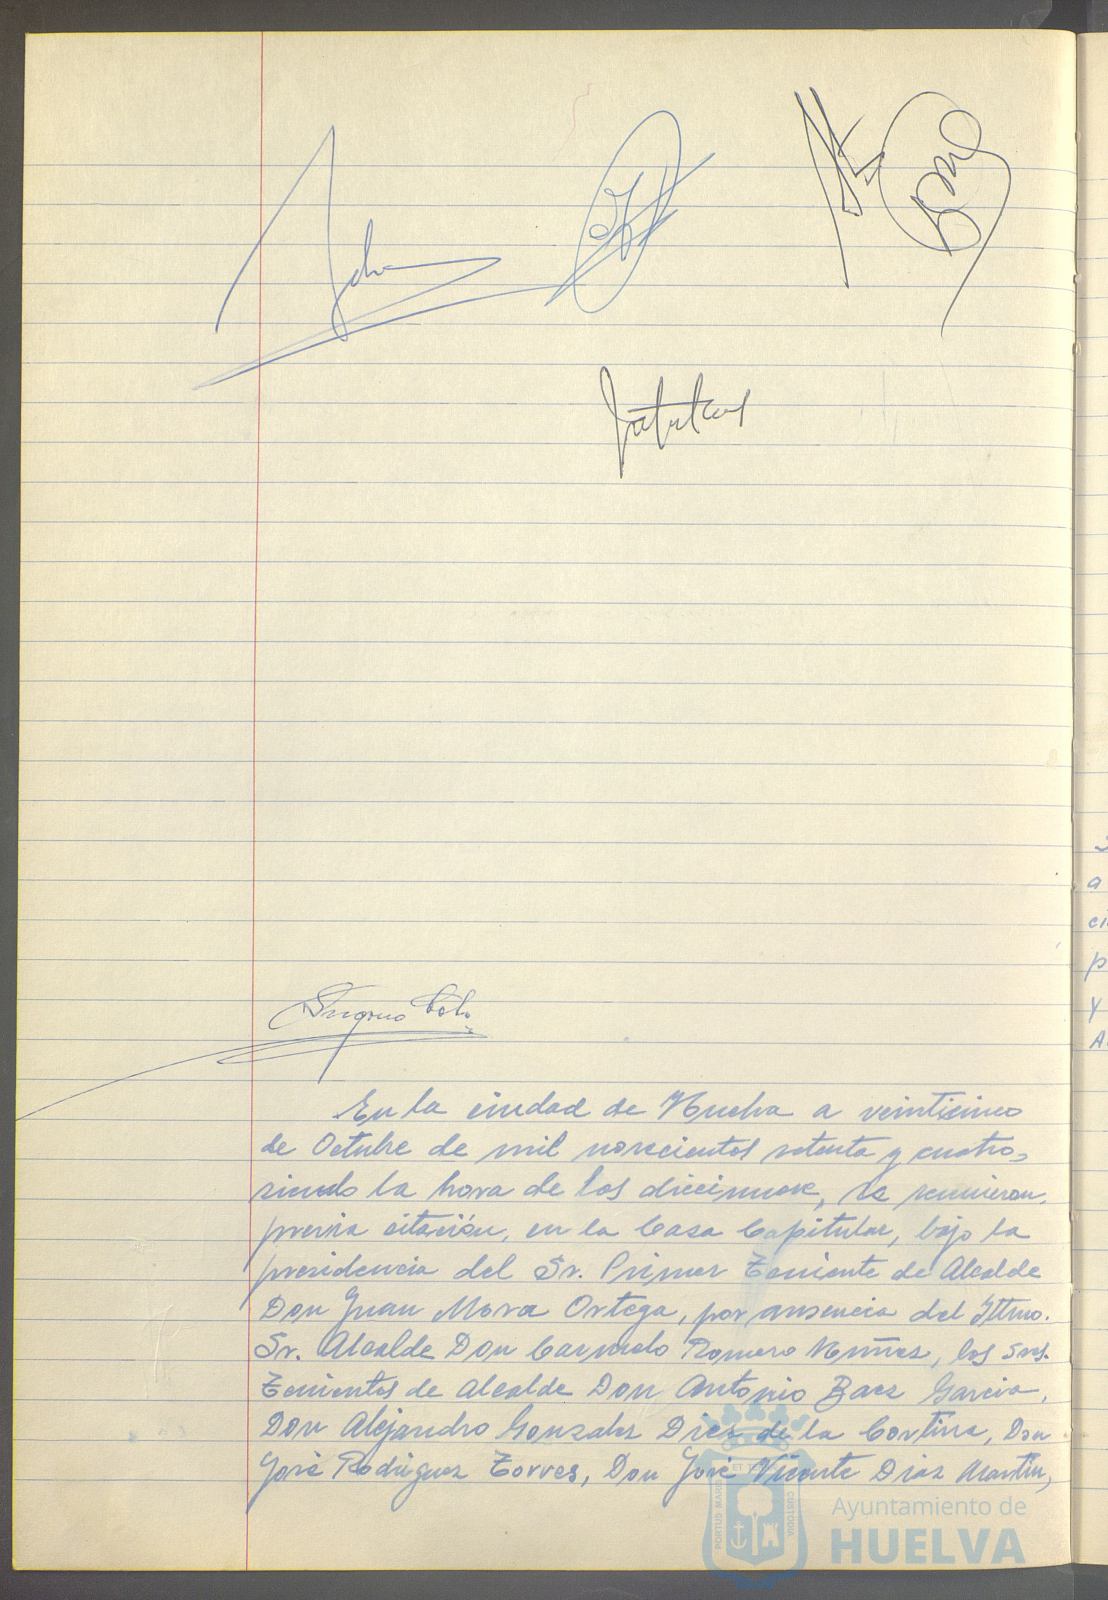 En la ciudad de Huelva a veinticinco
de Octubre de mil novecientos setenta y cuatro,
siendo la hora de las diecinueve, se reunieron,
previa citación, en la Casa Capitular, bajo la
presidencia del Sr. Primer Teniente de Alcalde
Don Juan Mora Ortega, por ausencia del Iltmo.
Sr. Alcalde Don Carmelo Romero Núñez, los Sres.
Tenientes de Alcalde Don Antonio Baez Garcia,
Don Alejandro Gonzalez Diez de la Cortina, Don
José Rodriguez Torres, Don José Vicente Diaz Martin,
PORTUS MARIS ET TERRAE CUSTODIA
Ayuntamiento de
HUELVA